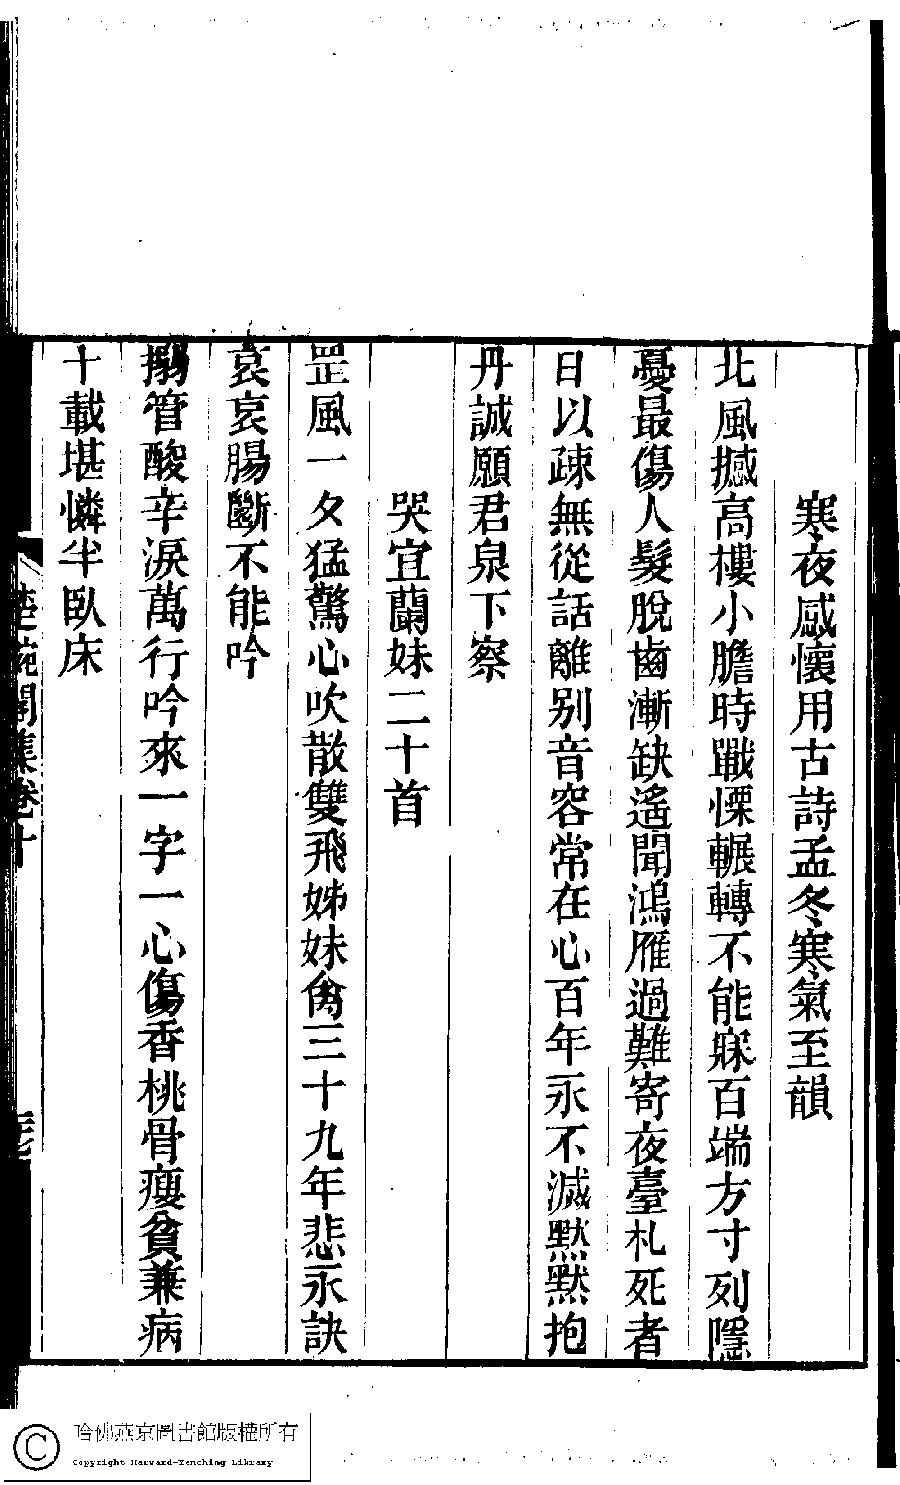 寒夜感懷用古詩孟冬寒氣至韻
北風撼高樓小膽時戰慄輾轉不能寐百端方寸列隱
憂最傷人髮脫齒漸缺遙聞鴻雁過難寄夜臺札死者
日以疎無從話離别音容常在心百年永不滅黙黙抱
丹誠願君泉下察
哭宜蘭妹二十首
罡風一夕猛驚心吹散雙飛姊妹禽三十九年悲永訣
哀哀腸斷不能吟
搦管酸辛淚萬行吟來一字一心傷香桃骨瘦貧兼病
十載堪憐半臥床
集卷十
哈佛燕京圖書館版權所有
Copyright Harvard-Yenching Library